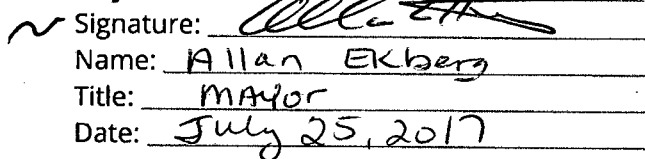 Signature:
Name: Allan Ekberg
Title: MAyor
Date: July 25, 2017